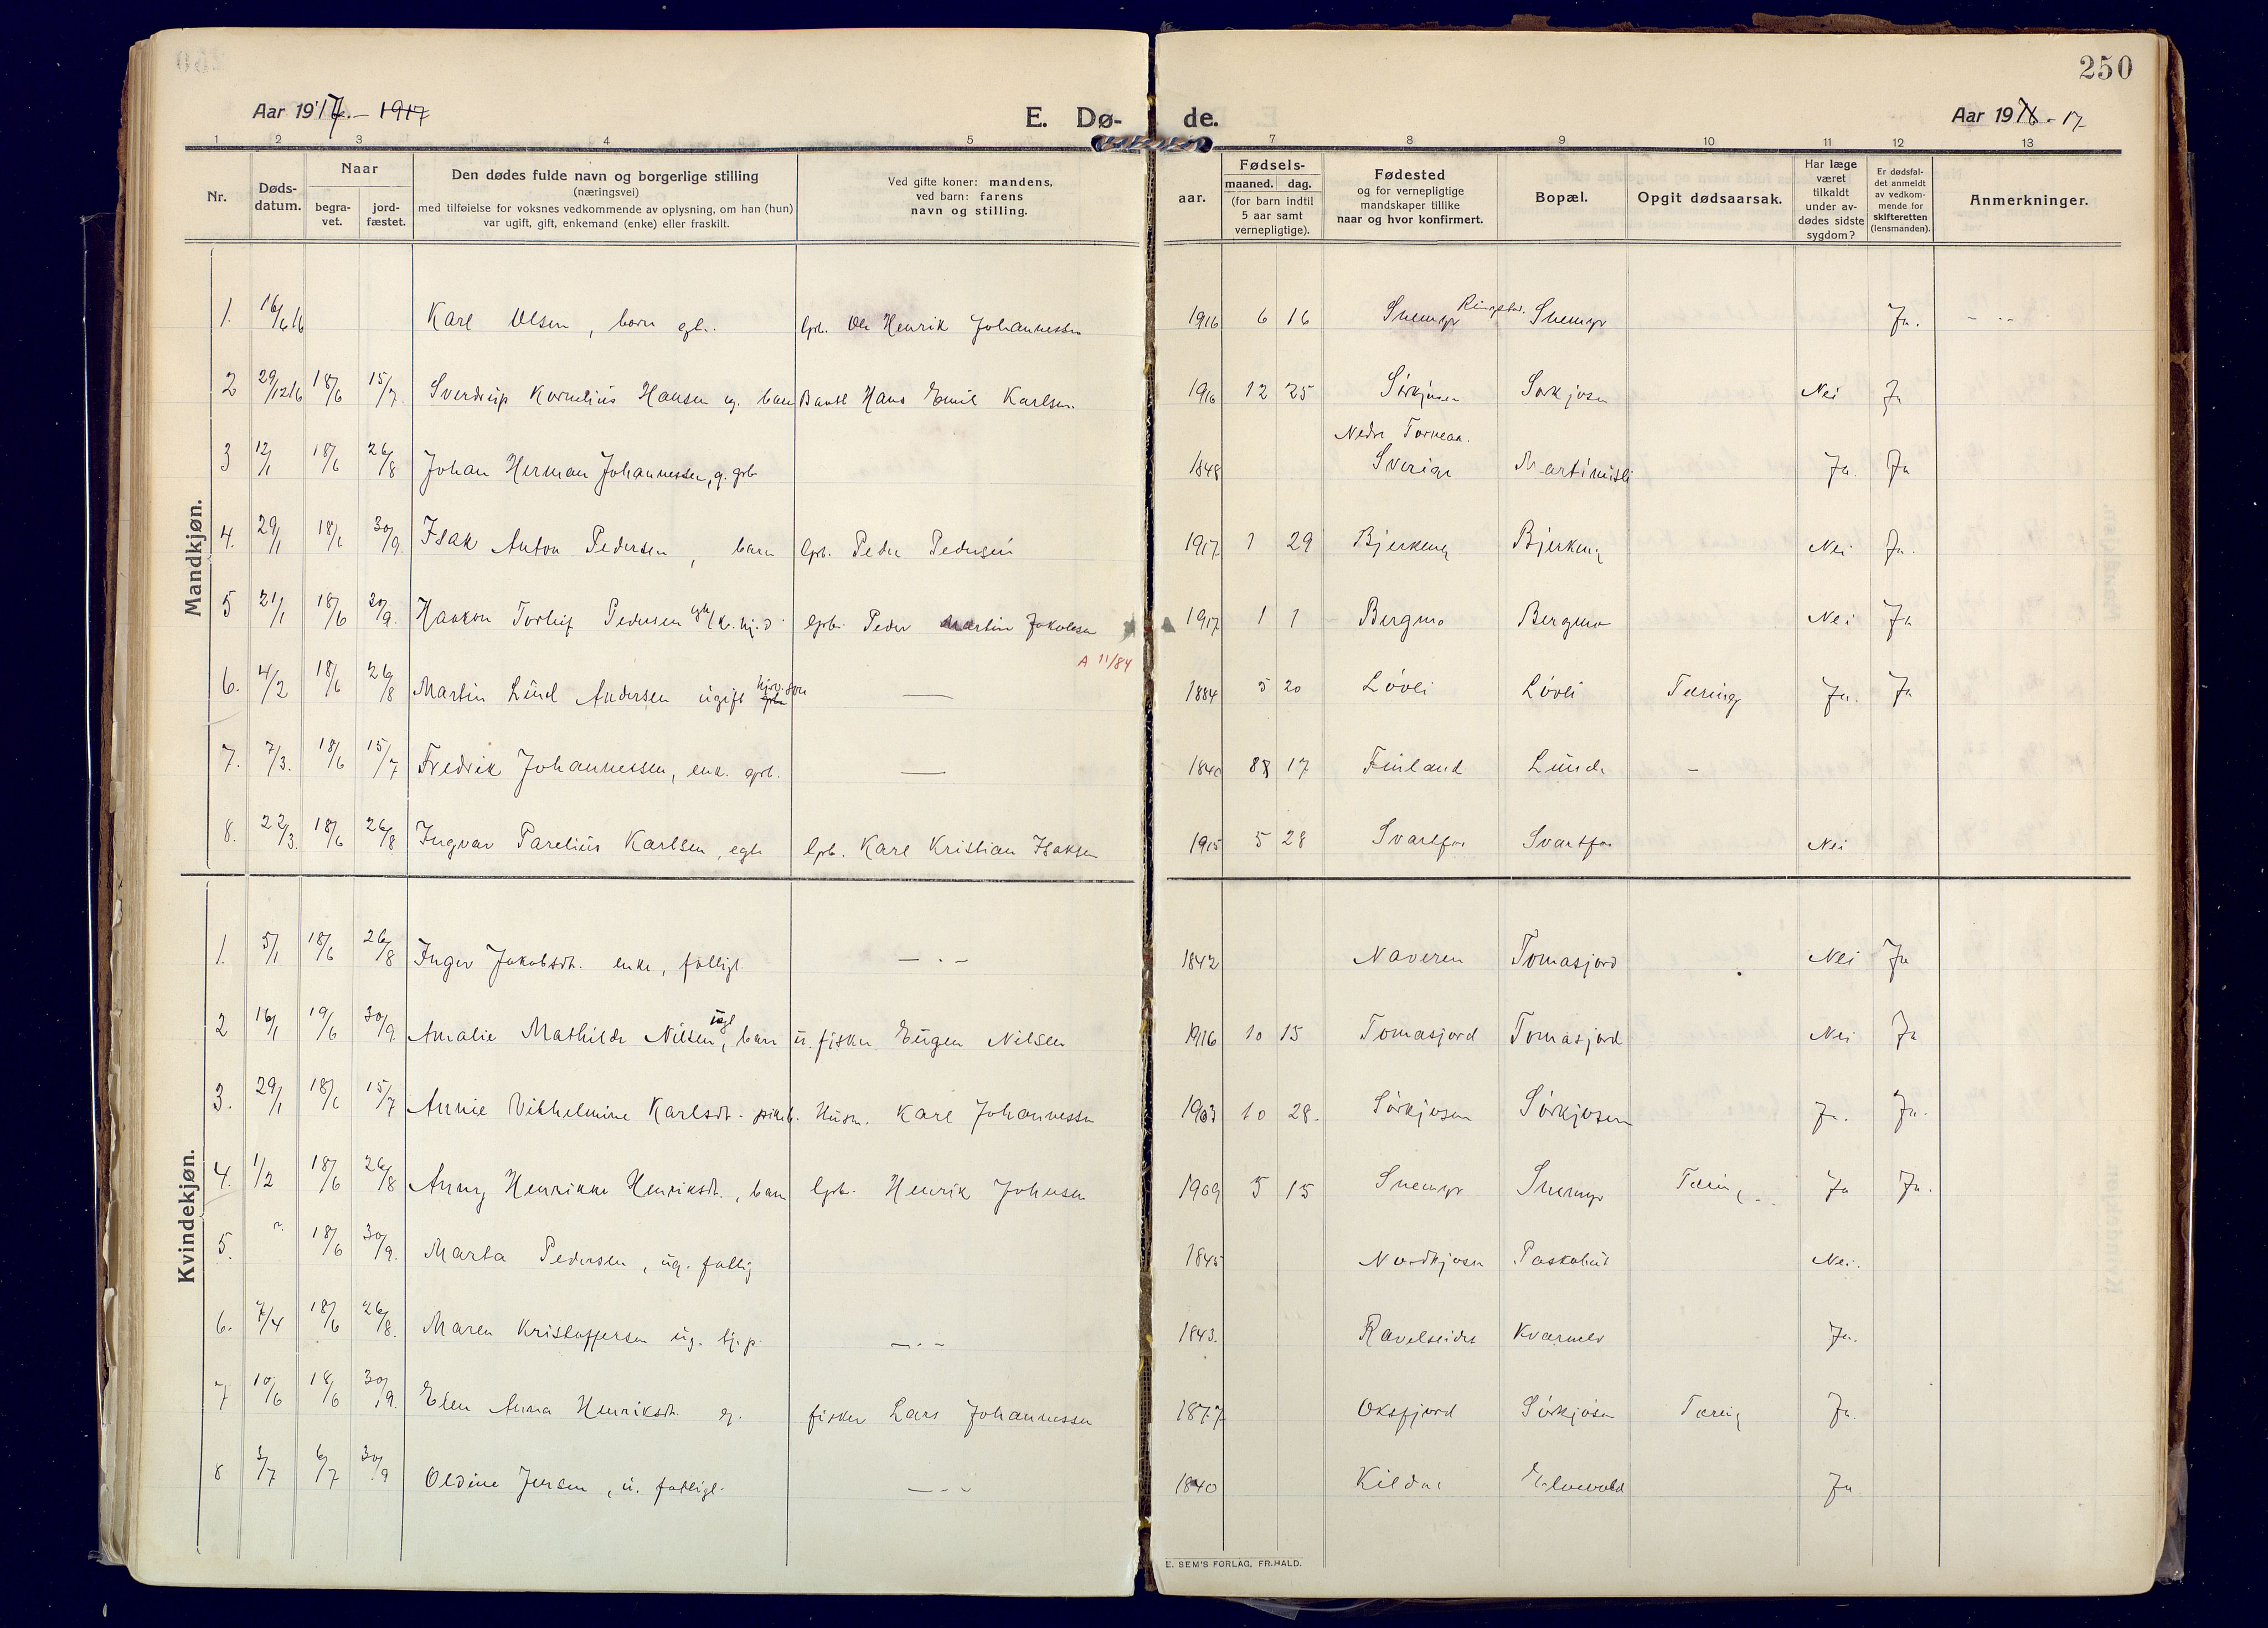 250
Aar 1917. - 1917
E. Dø- de.
Aar 1916 - 17
1 2 3 4 5 7 8 9 10 11 12 13
Nr.
Døds-
datum.
Naar
begra-
vet.
jord-
fæstet.
Den dødes fulde navn og borgerlige stilling
(næringsvei)
med tilføielse for voksnes vedkommende av oplysning, om han (hun)
var ugift, gift, enkemand (enke) eller fraskilt.
Ved gifte koner: mandens,
ved barn: farens
navn og stilling.
aar.
Fødsels-
maaned. dag.
(for barn indtil
5 aar samt
vernepligtige).
Fødested
og for vernepligtige
mandskaper tillike
naar og hvor konfirmert.
Bopæl.
Opgit dødsaarsak.
Har læge
været
tilkaldt
under av-
dødes sidste
sygdom?
Er dødsfal-
det anmeldt
av vedkom-
mende for
skifteretten
(lensmanden).
Anmerkninger.
Mandkjøn.
1. 16/6 16 Karl Olsen, barn Ole Henrik Johannessen 1916 6 16 Snemyr Snemyr Ja.
2 29/12 16 18/6 15/7. Sverdrup Kornelius Hansen barn Hans Emil Karlsen. 1916 12 25 Sørkjosen Sørkjosen Nei Ja
Nedre Torneaa.
3 12/1 18/6 26/8 Johan Herman Johannessen, g. grb 1848 Sverige Ja. Ja
4. 29/1 18/6 30/9. Isak Anton Pedersen, barn lpb. Peder Pedersen 1917 1 29 Bjerkeng Bjerkeng Nei Ja.
5 21/1 18/6 30/9. Haakon Torleif Pedersen Peder Martin Jakobsen 1917 1 1 Bergmo Bergmo Nei Ja
A 11/84
6. 4/2 18/6 26/8 Martin Lund Andersen ugift — 1884 5 20 Løvli Løvli Tæring Ja. Ja
7. 7/3. 18/6 15/7 Fredrik Johannessen, enk. grb. — 1840 8 17 Finland Lunde –
8. 22/3. 18/6 26/8 Ingvar Parelius Karlsen, egte lpb. Karl Kristian Isaksen 1915 5 28 Svartfos Svartfos Nei
Kvindekjøn.
1. 5/1 18/6 26/8 Inger Jakobsdt. enke, fattigl. — . - 1842 Naveren Tomasjord Nei Ja
2 16/1 19/6 30/9. Amalie Mathilde Nilsen, barn u. fisker Eugen Nilsen 1916 10 15 Tomasjord Tomasjord Nei Ja
3. 29/1 18/6 15/7 Annie Vilhelmine Karlsdt. Husm. Karl Johannessen 1903 10 28. Sørkjosen Sørkjosen Ja. Ja.
4. 1/2 18/6 26/8 Anny Henrikke Henriksdt., barn lpb. Henrik Johnsen 1909 5 15 Snemyr Snemyr Tæring Ja Ja.
5. 18/6 30/9. Marta Pedersen, ug. fattig 1845 Nordkjosen Nei.
6. 7/4 18/6 26/8. Maren Kristoffersen ug. tj.p. — . - 1843. Ravelseidet Kvænelv Ja.
7 10/6 18/6 30/9. Elen Anna Henriksdt. g. fisker Lars Johannessen 1877 Oksfjord Sørkjosen Tæring Ja.
8 3/7 6/7 30/9 Oldine Jensen, u. fattigl. — - - 1840 Kildal Elvevold Ja
E. SEM'S FORLAG, FR.HALD.